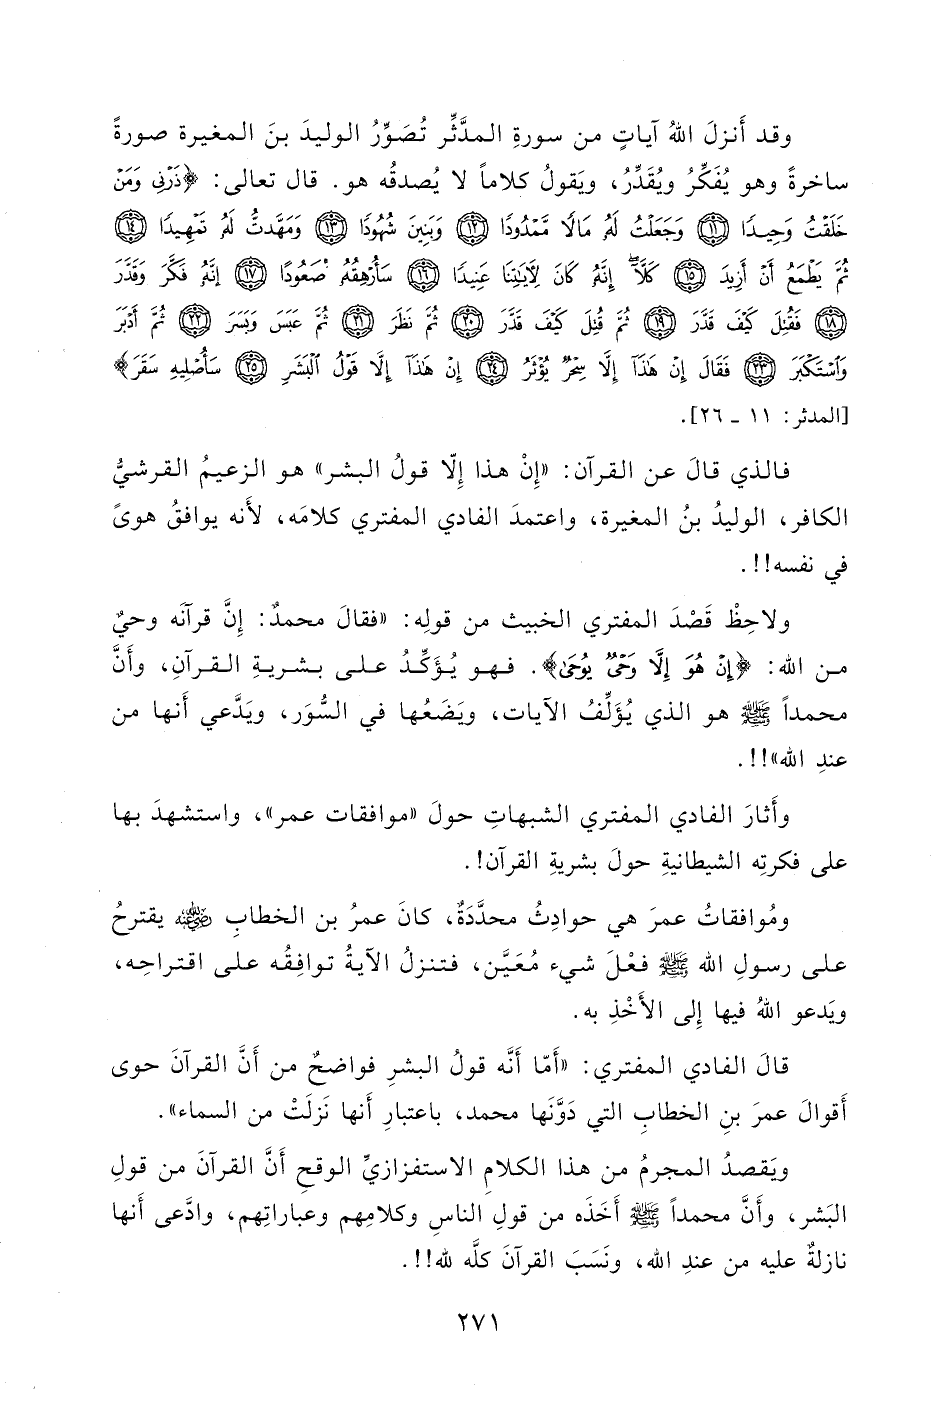 وقد أَنزلَ اللهُ آياتٍ من سورةِ المدَّثِّر تُصَوِّرُ الوليدَ بنَ المغيرة صورةً
ساخرةً وهو يُفَكِّرُ ويُقَدِّرُ، ويَقولُ كلاماً لا يُصدقُه هو. قال تعالى: ﴿ذَرْنِي وَمَنْ
خَلَقْتُ وَحِيدًا ۝١١ وَجَعَلْتُ لَهُ مَالًا مَّمْدُودًا ۝١٢ وَبَنِينَ شُهُودًا ۝١٣ وَمَهَّدتُّ لَهُ تَمْهِيدًا ۝١٤
ثُمَّ يَطْمَعُ أَنْ أَزِيدَ ۝١٥ كَلَّا ۖ إِنَّهُ كَانَ لِآيَاتِنَا عَنِيدًا ۝١٦ سَأُرْهِقُهُ صَعُودًا ۝١٧ إِنَّهُ فَكَّرَ وَقَدَّرَ
۝١٨ فَقُتِلَ كَيْفَ قَدَّرَ ۝١٩ ثُمَّ قُتِلَ كَيْفَ قَدَّرَ ۝٢٠ ثُمَّ نَظَرَ ۝٢١ ثُمَّ عَبَسَ وَبَسَرَ ۝٢٢ ثُمَّ أَدْبَرَ
وَاسْتَكْبَرَ ۝٢٣ فَقَالَ إِنْ هَٰذَا إِلَّا سِحْرٌ يُؤْثَرُ ۝٢٤ إِنْ هَٰذَا إِلَّا قَوْلُ الْبَشَرِ ۝٢٥ سَأُصْلِيهِ سَقَرَ﴾
[المدثر: ١١ ـ ٢٦].
فالذي قالَ عن القرآن: «إِنْ هذا إِلّا قولُ البشر» هو الزعيمُ القرشيُّ
الكافر، الوليدُ بنُ المغيرة، واعتمدَ الفادي المفتري كلامَه، لأَنه يوافقُ هوىً
في نفسه!!.
ولاحِظْ قَصْدَ المفتري الخبيث من قولِه: «فقالَ محمدٌ: إِنَّ قرآنَه وحيٌ
من الله: ﴿إِنْ هُوَ إِلَّا وَحْيٌ يُوحَىٰ﴾. فهو يُؤَكِّدُ على بشريةِ القرآنِ، وأَنَّ
محمداً ﷺ هو الذي يُؤَلِّفُ الآيات، ويَضَعُها في السُّوَر، ويَدَّعي أَنها من
عندِ الله»!!.
وأَثارَ الفادي المفتري الشبهاتِ حولَ «موافقات عمر»، واستشهدَ بها
على فكرتِه الشيطانيةِ حولَ بشريةِ القرآن!.
ومُوافقاتُ عمرَ هي حوادِثُ محدَّدَةٌ، كانَ عمرُ بن الخطابِ رضي الله عنه يقترحُ
على رسولِ الله ﷺ فعْلَ شيء مُعَيَّن، فتنزلُ الآيةُ توافِقُه على اقتراحِه،
ويَدعو اللهُ فيها إِلى الأَخْذِ به.
قالَ الفادي المفتري: «أَمّا أَنَّه قولُ البشرِ فواضحٌ من أَنَّ القرآنَ حوى
أَقوالَ عمرَ بنِ الخطابِ التي دَوَّنَها محمد، باعتبارِ أَنها نَزلَتْ من السماء».
ويَقصدُ المجرمُ من هذا الكلامِ الاستفزازيِّ الوقحِ أَنَّ القرآنَ من قولِ
البَشر، وأَنَّ محمداً ﷺ أَخَذَه من قولِ الناسِ وكلامِهم وعباراتِهم، وادَّعى أَنها
نازلةٌ عليه من عندِ الله، ونَسَبَ القرآنَ كلَّه لله!!.
٢٧١